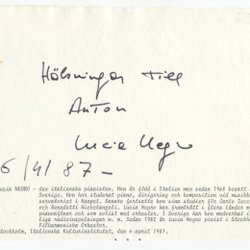 Hälsningar till
Anton
Lucia Negro
6/4/87-
Lucia NEGRO - den italienske pianisten. Hon är född i Italien men sedan 1968 bosatt i
Sverige. Hon har studerat piano, dirigering och komposition vid musikkon-
servatoriet i Neapel. Senare fortsatte hon sina studier för Carlo Zecchi
och Benedetti Michelangeli. Lucia Negro har framträtt i flera länder med
pianoaftnar och som solist med orkester. I Sverige har hon medverkat i
radioinspelningar m m. Sedan 1982 är Lucia Negro pianist i Stockholms
Filharmoniska Orkester.
Stockholm, Italienska Kulturinstitutet, den 6 april 1987.